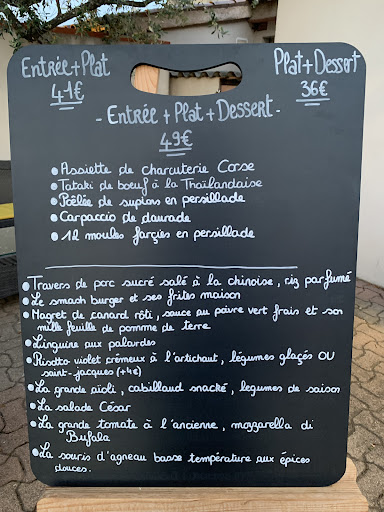 Entrée+Plat
41€
Plat+Dessert
36€
- Entrée + Plat + Dessert -
49€
• Assiette de charcuterie Corse
• Tataki de bœuf à la Thaïlandaise
• Poêlée de supions en persillade
• Carpaccio de daurade
• 12 moules farçies en persillade
• Travers de porc sucré salé à la chinoise, riz parfumé
• Le smash burger et ses frites maison
• Magret de canard rôti, sauce au poivre vert frais et son
mille feuille de pomme de terre
• Linguine aux palourdes
• Risotto violet crémeux à l'artichaut, légumes glaçés OU
saint-jacques (+4€)
• La grande aïoli, cabillaud snacké, legumes de saison
• La salade César
• La grande tomate à l'ancienne, mozzarella di
Bufala
• La souris d'agneau basse température aux épices
douces.